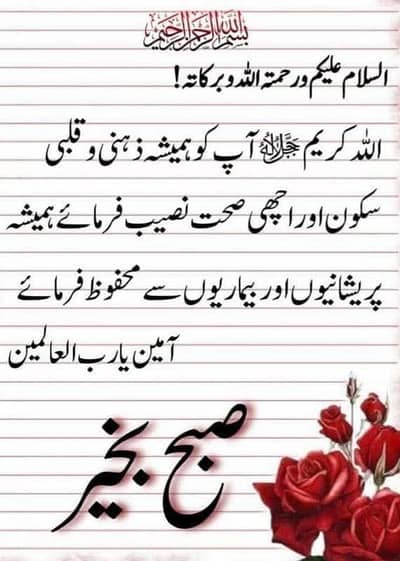 بسم اللہ الرحمن الرحیم
السلام علیکم ورحمتہ اللہ وبرکاتہ!
اللہ کریم جل جلالہ آپ کو ہمیشہ ذہنی و قلبی
سکون اور اچھی صحت نصیب فرمائے ہمیشہ
پریشانیوں اور بیماریوں سے محفوظ فرمائے
آمین یارب العالمین
صبح بخیر